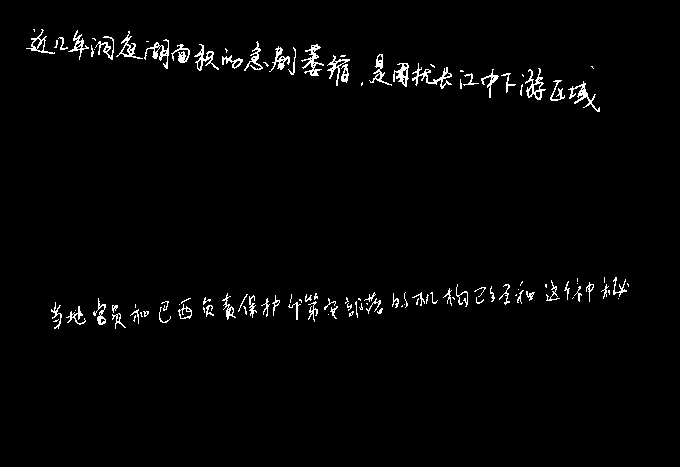 近几年洞庭湖面积的急剧萎缩,是困扰长江中下游区域
当地官员和巴西负责保护印第安部落的机构已经和这个神秘